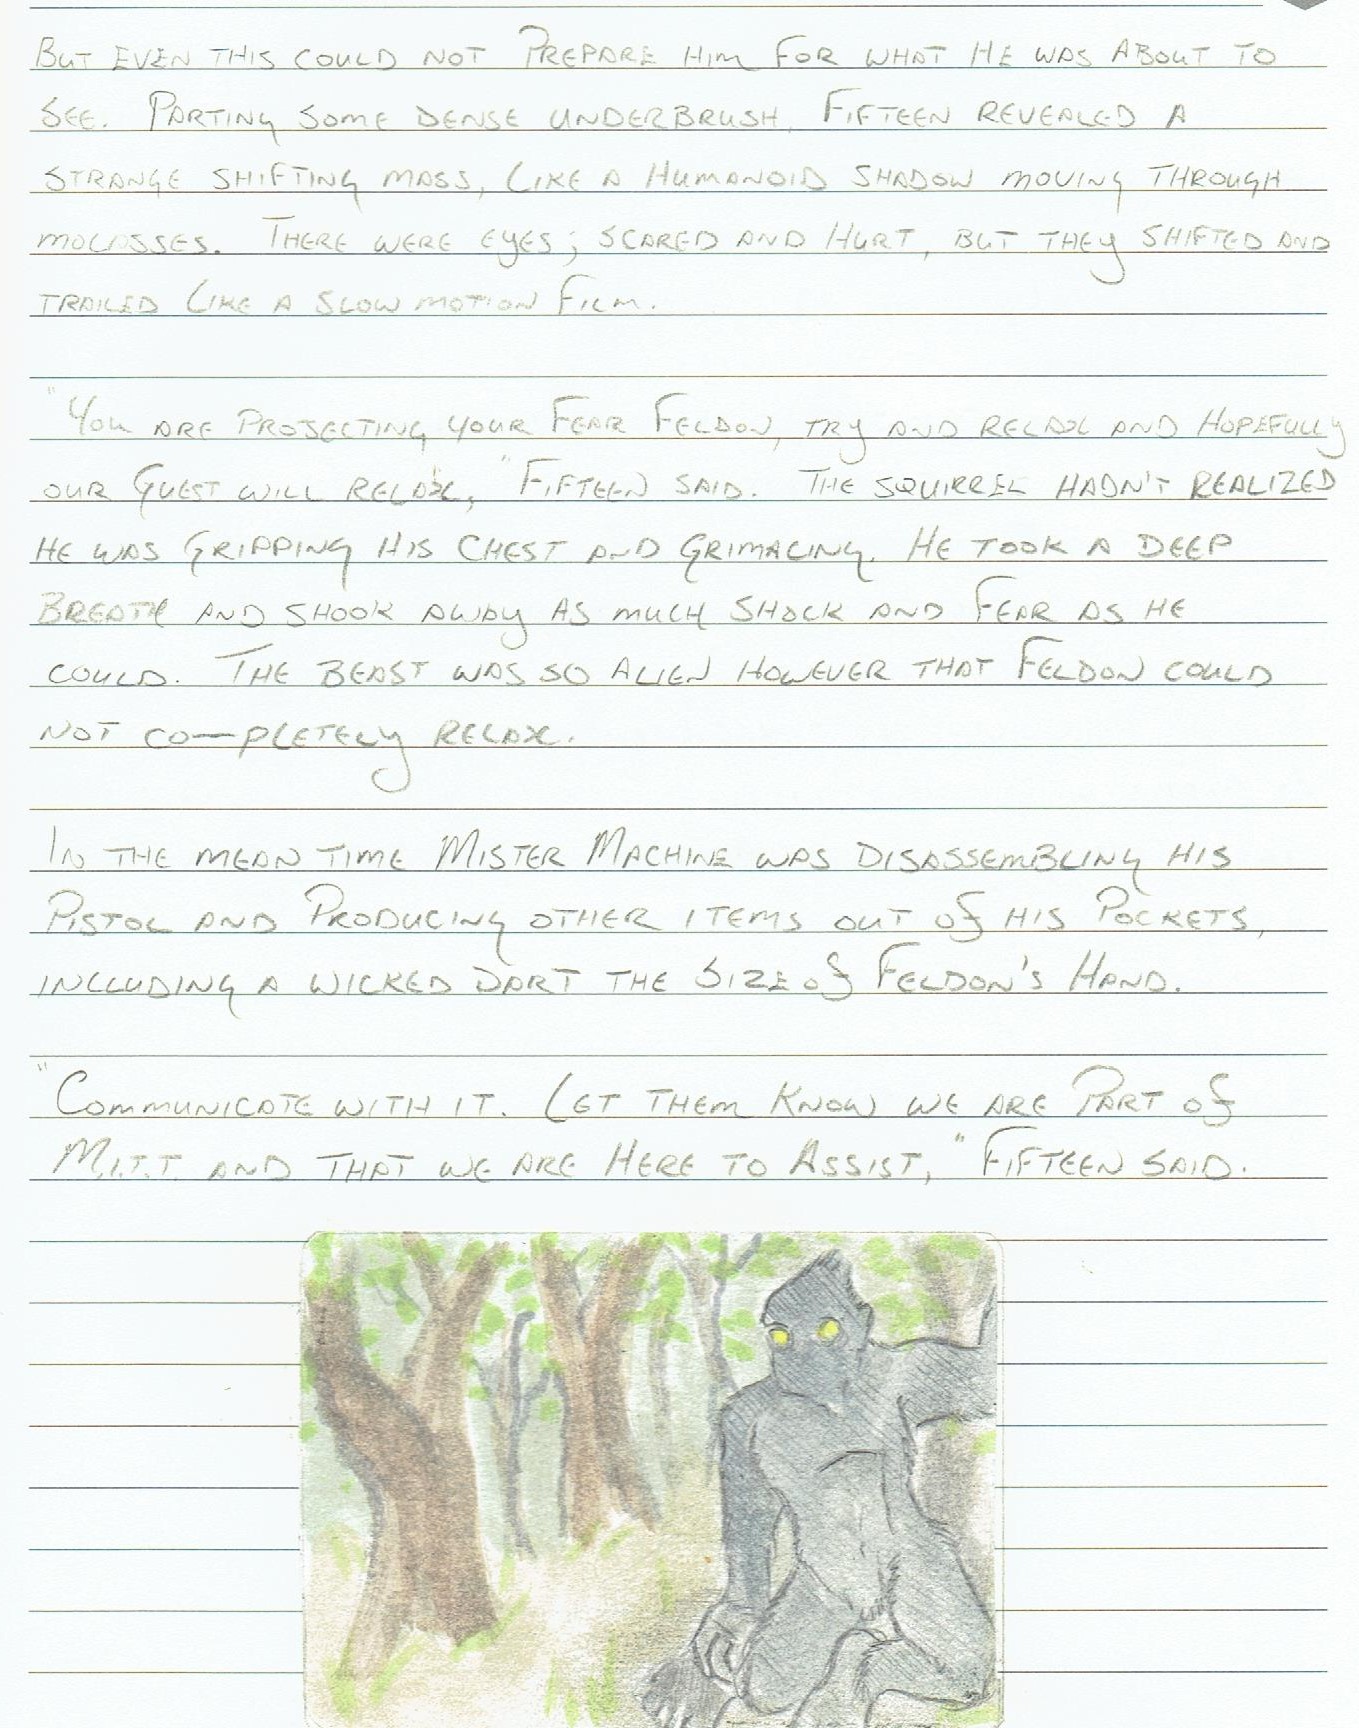 BUT EVEN THIS COULD NOT PREPARE HIM FOR WHAT HE WAS ABOUT TO
SEE. PARTING SOME DENSE UNDERBRUSH, FIFTEEN REVEALED A
STRANGE SHIFTING MASS, LIKE A HUMANOID SHADOW MOVING THROUGH
MOLASSES. THERE WERE EYES; SCARED AND HURT, BUT THEY SHIFTED AND
TRAILED LIKE A SLOW MOTION FILM.
"YOU ARE PROJECTING YOUR FEAR FELDON, TRY AND RELAX AND HOPEFULLY
OUR GUEST WILL RELAX," FIFTEEN SAID. THE SQUIRREL HADN'T REALIZED
HE WAS GRIPPING HIS CHEST AND GRIMACING. HE TOOK A DEEP
BREATH AND SHOOK AWAY AS MUCH SHOCK AND FEAR AS HE
COULD. THE BEAST WAS SO ALIEN HOWEVER THAT FELDON COULD
NOT COMPLETELY RELAX.
IN THE MEAN TIME MISTER MACHINE WAS DISASSEMBLING HIS
PISTOL AND PRODUCING OTHER ITEMS OUT OF HIS POCKETS,
INCLUDING A WICKED DART THE SIZE OF FELDON'S HAND.
"COMMUNICATE WITH IT. LET THEM KNOW WE ARE PART OF
M.I.T.T AND THAT WE ARE HERE TO ASSIST," FIFTEEN SAID.